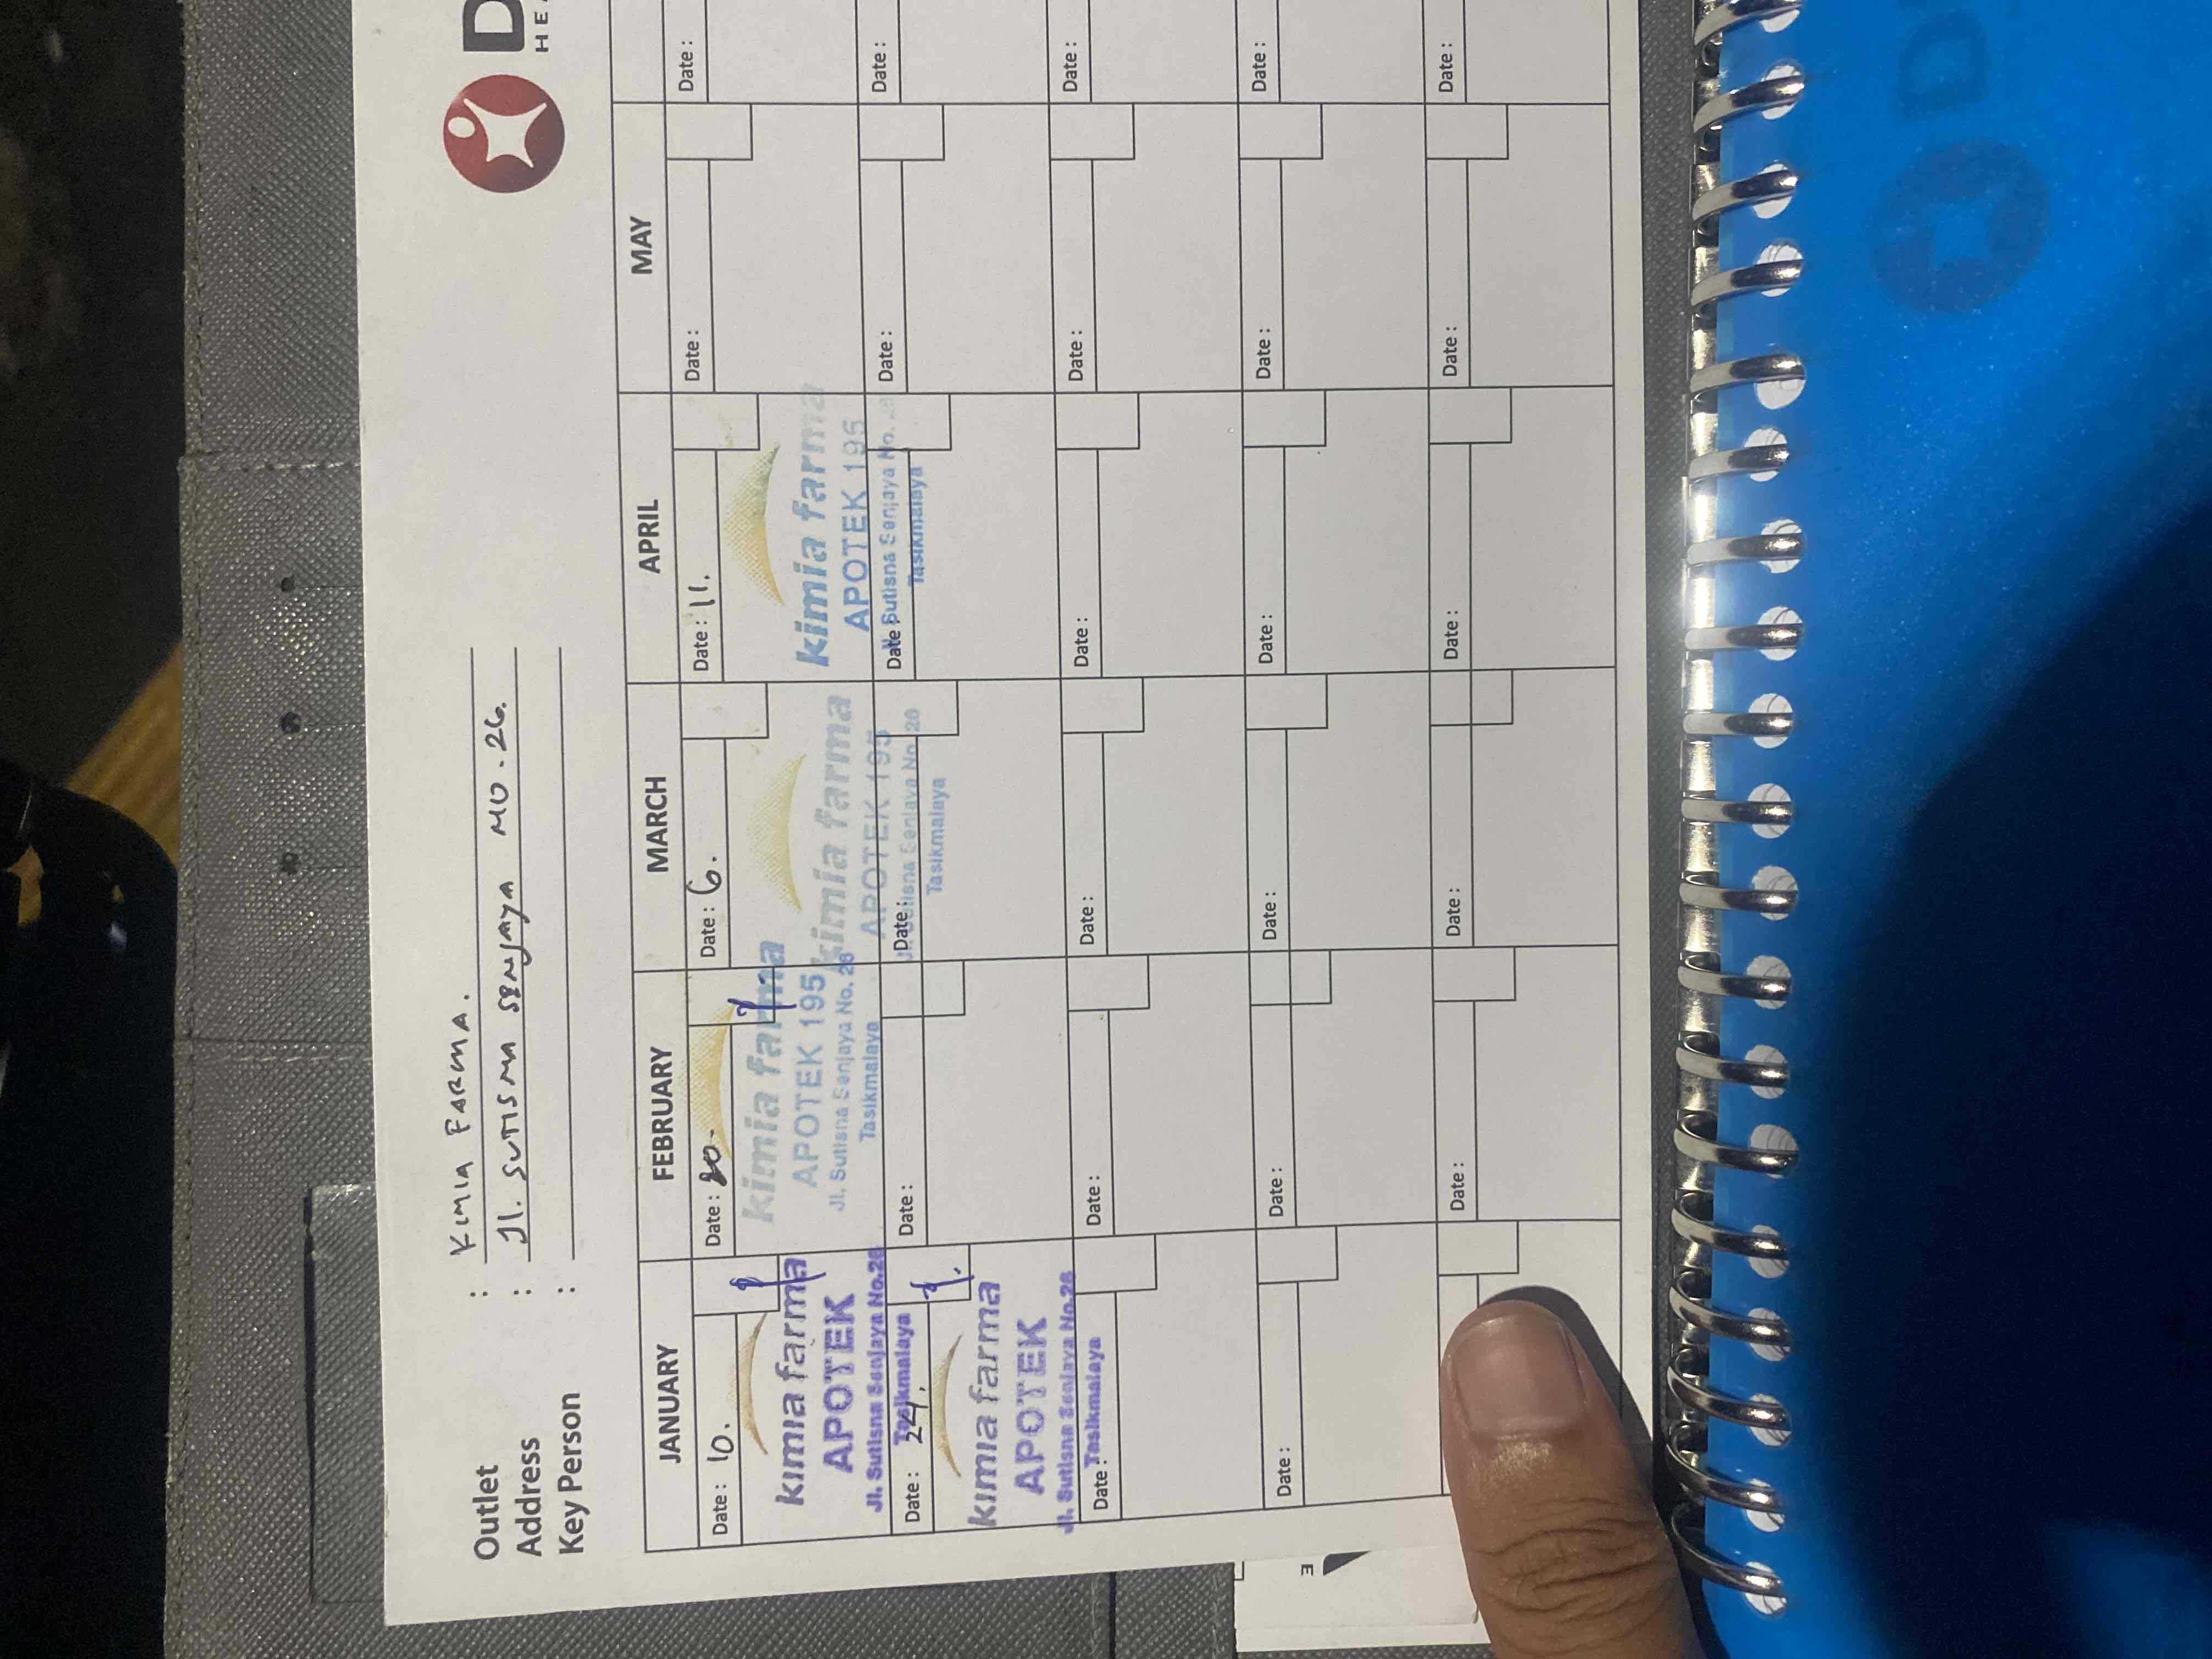 Outlet : KIMIA FARMA.
Address : Jl. SUTISNA SENJAYA NO. 26.
Key Person :
D
HEA
JANUARY FEBRUARY MARCH APRIL MAY
Date : 10. Date : 20. Date : 6. Date : 11. Date : Date :
kimia farma
APOTEK
Jl. Sutisna Senjaya No.26
Tasikmalaya
kimia farma
APOTEK 195
Jl. Sutisna Senjaya No. 26
Tasikmalaya
kimia farma
APOTEK 195
Sutisna Senjaya No. 26
Tasikmalaya
kimia farma
APOTEK 195
Sutisna Senjaya No.
Tasikmalaya
Date : 24. Date : Date : Date : Date : Date :
kimia farma
APOTEK
Jl. Sutisna Senjaya No.26
Tasikmalaya
Date : Date : Date : Date : Date : Date :
Date : Date : Date : Date : Date : Date :
Date : Date : Date : Date : Date :
E
D